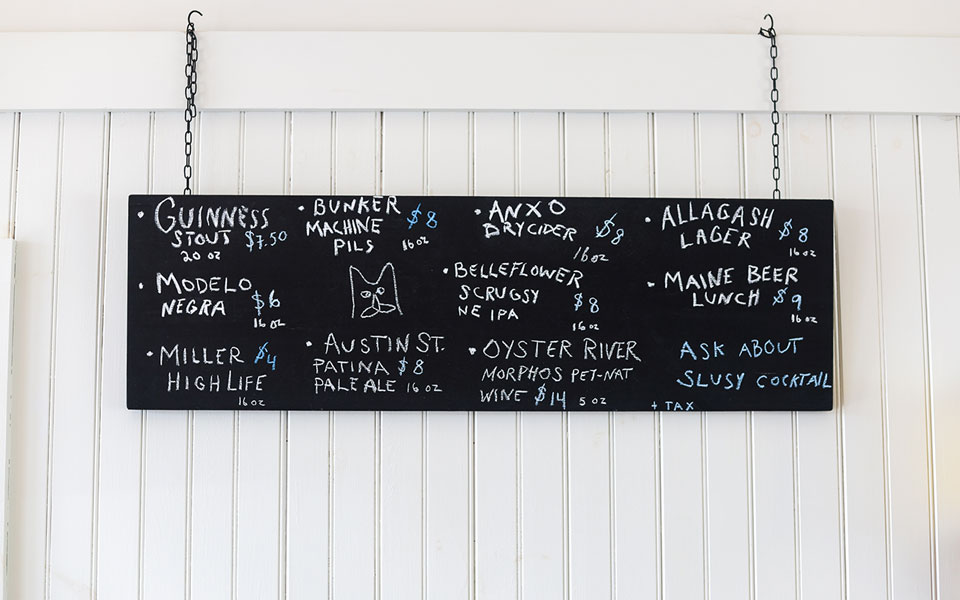 • GUINNESS
STOUT $7.50
20 OZ
• BUNKER
MACHINE $8
PILS 16 OZ
• ANXO
DRY CIDER $8
16 OZ
• ALLAGASH
LAGER $8
16 OZ
• MODELO
NEGRA $6
16 OZ
• BELLEFLOWER
SCRUGSY
NE IPA $8
16 OZ
• MAINE BEER
LUNCH $9
16 OZ
• MILLER $4
HIGH LIFE
16 OZ
• AUSTIN ST.
PATINA $8
PALE ALE 16 OZ
• OYSTER RIVER
MORPHOS PET-NAT
WINE $14 5 OZ
ASK ABOUT
SLUSY COCKTAIL
+ TAX